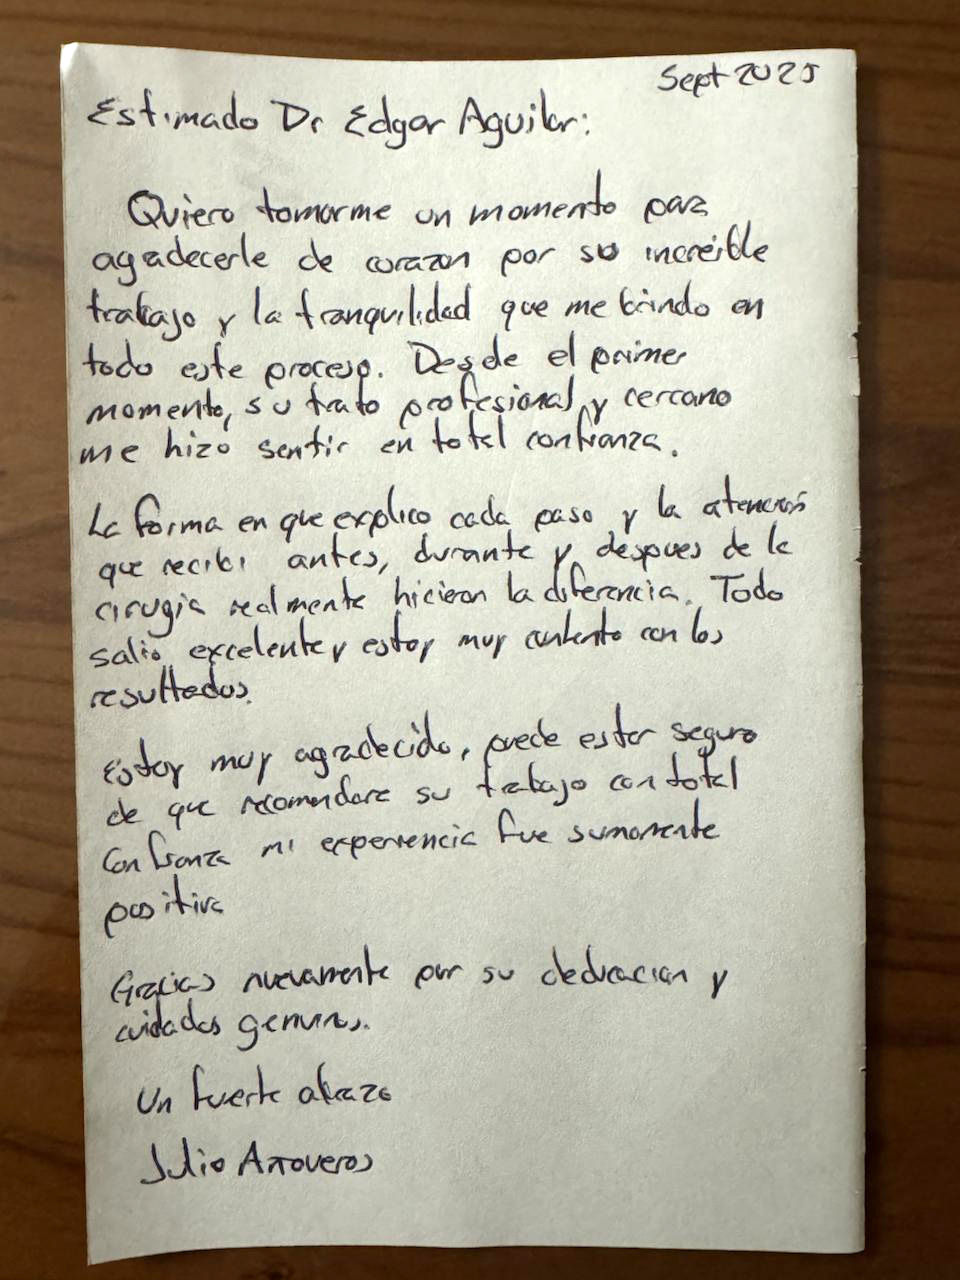 Sept 2025
Estimado Dr Edgar Aguilar:
Quiero tomarme un momento para
agradecerle de corazon por su increible
trabajo y la tranquilidad que me brindo en
todo este proceso. Desde el primer
momento, su trato profesional y cercano
me hizo sentir en total confianza.
La forma en que explico cada paso y la atencion
que recibi antes, durante y despues de la
cirugia realmente hicieron la diferencia. Todo
salio excelente y estoy muy contento con los
resultados.
Estoy muy agradecido, puede estar seguro
de que recomendare su trabajo con total
confianza mi experiencia fue sumamente
positiva
Gracias nuevamente por su dedicacion y
cuidados genuinos.
Un fuerte abrazo
Julio